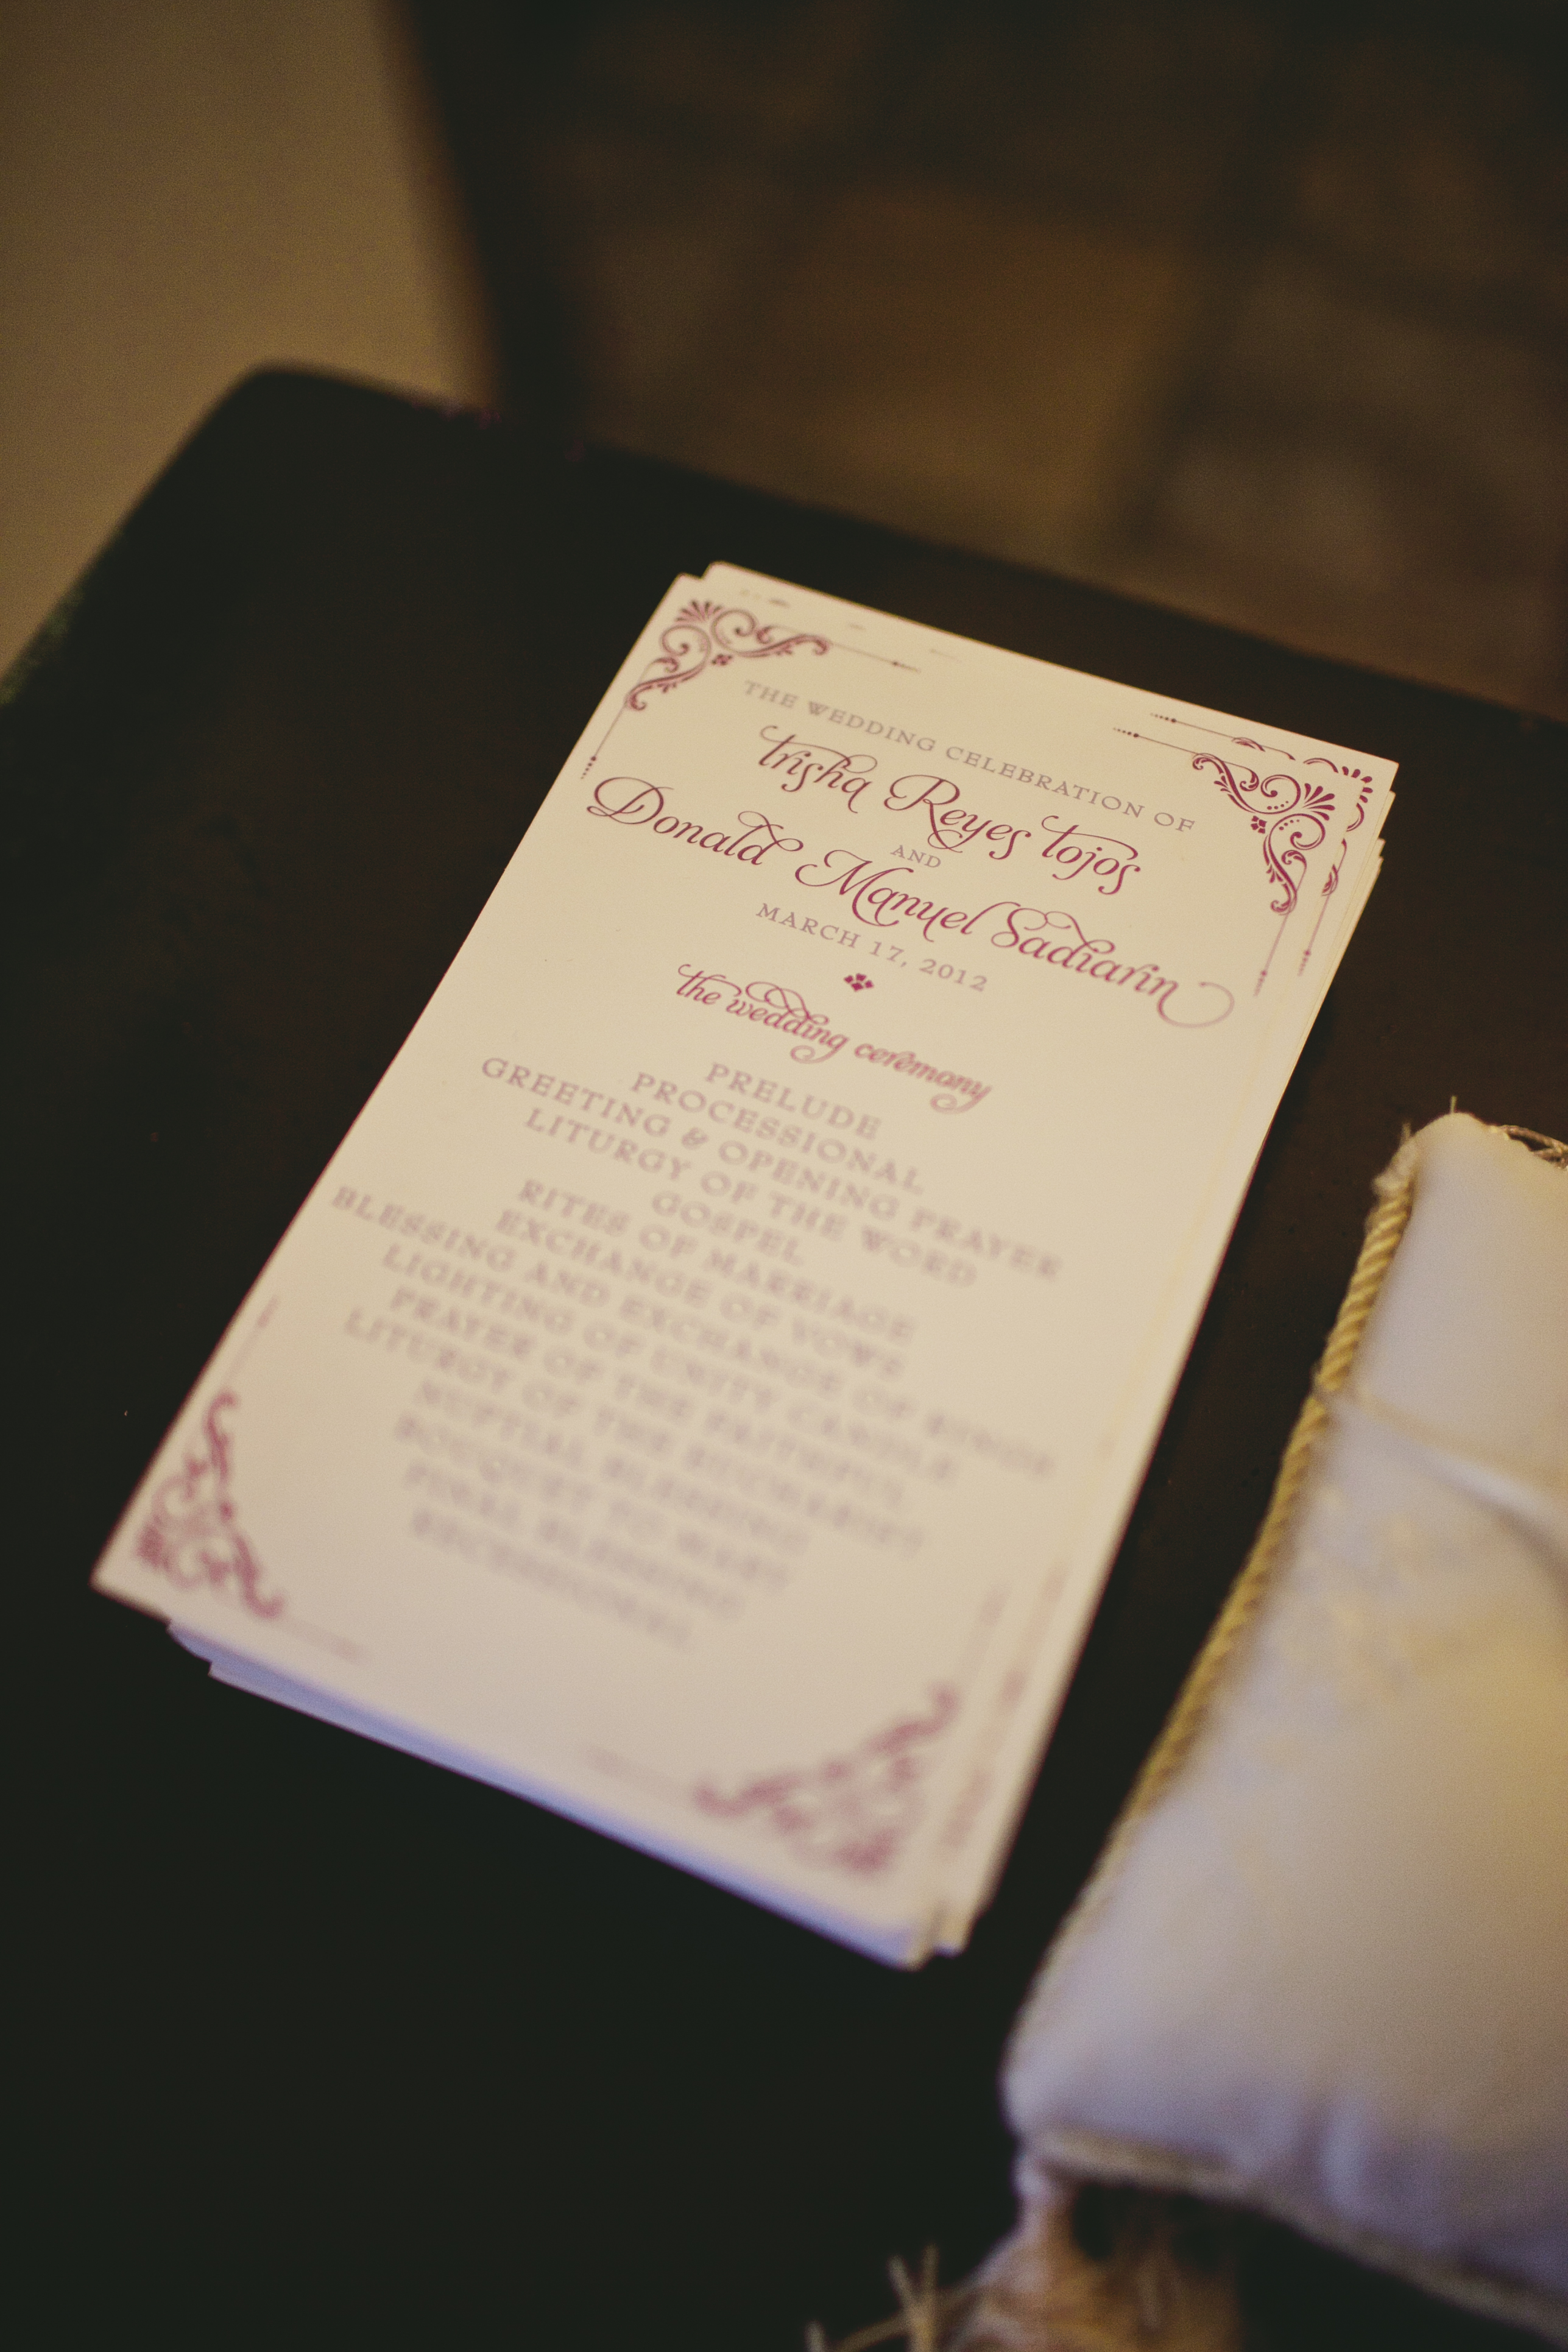 THE WEDDING CELEBRATION OF
trisha Reyes tojos
AND
Donald Manuel Sadiarin
MARCH 17, 2012
the wedding ceremony
PRELUDE
PROCESSIONAL
GREETING & OPENING PRAYER
LITURGY OF THE WORD
GOSPEL
RITES OF MARRIAGE
EXCHANGE OF VOWS
BLESSING AND EXCHANGE OF RINGS
LIGHTING OF UNITY CANDLE
PRAYER OF THE FAITHFUL
LITURGY OF THE EUCHARIST
NUPTIAL BLESSING
BOUQUET TO MARY
FINAL BLESSING
RECESSIONAL